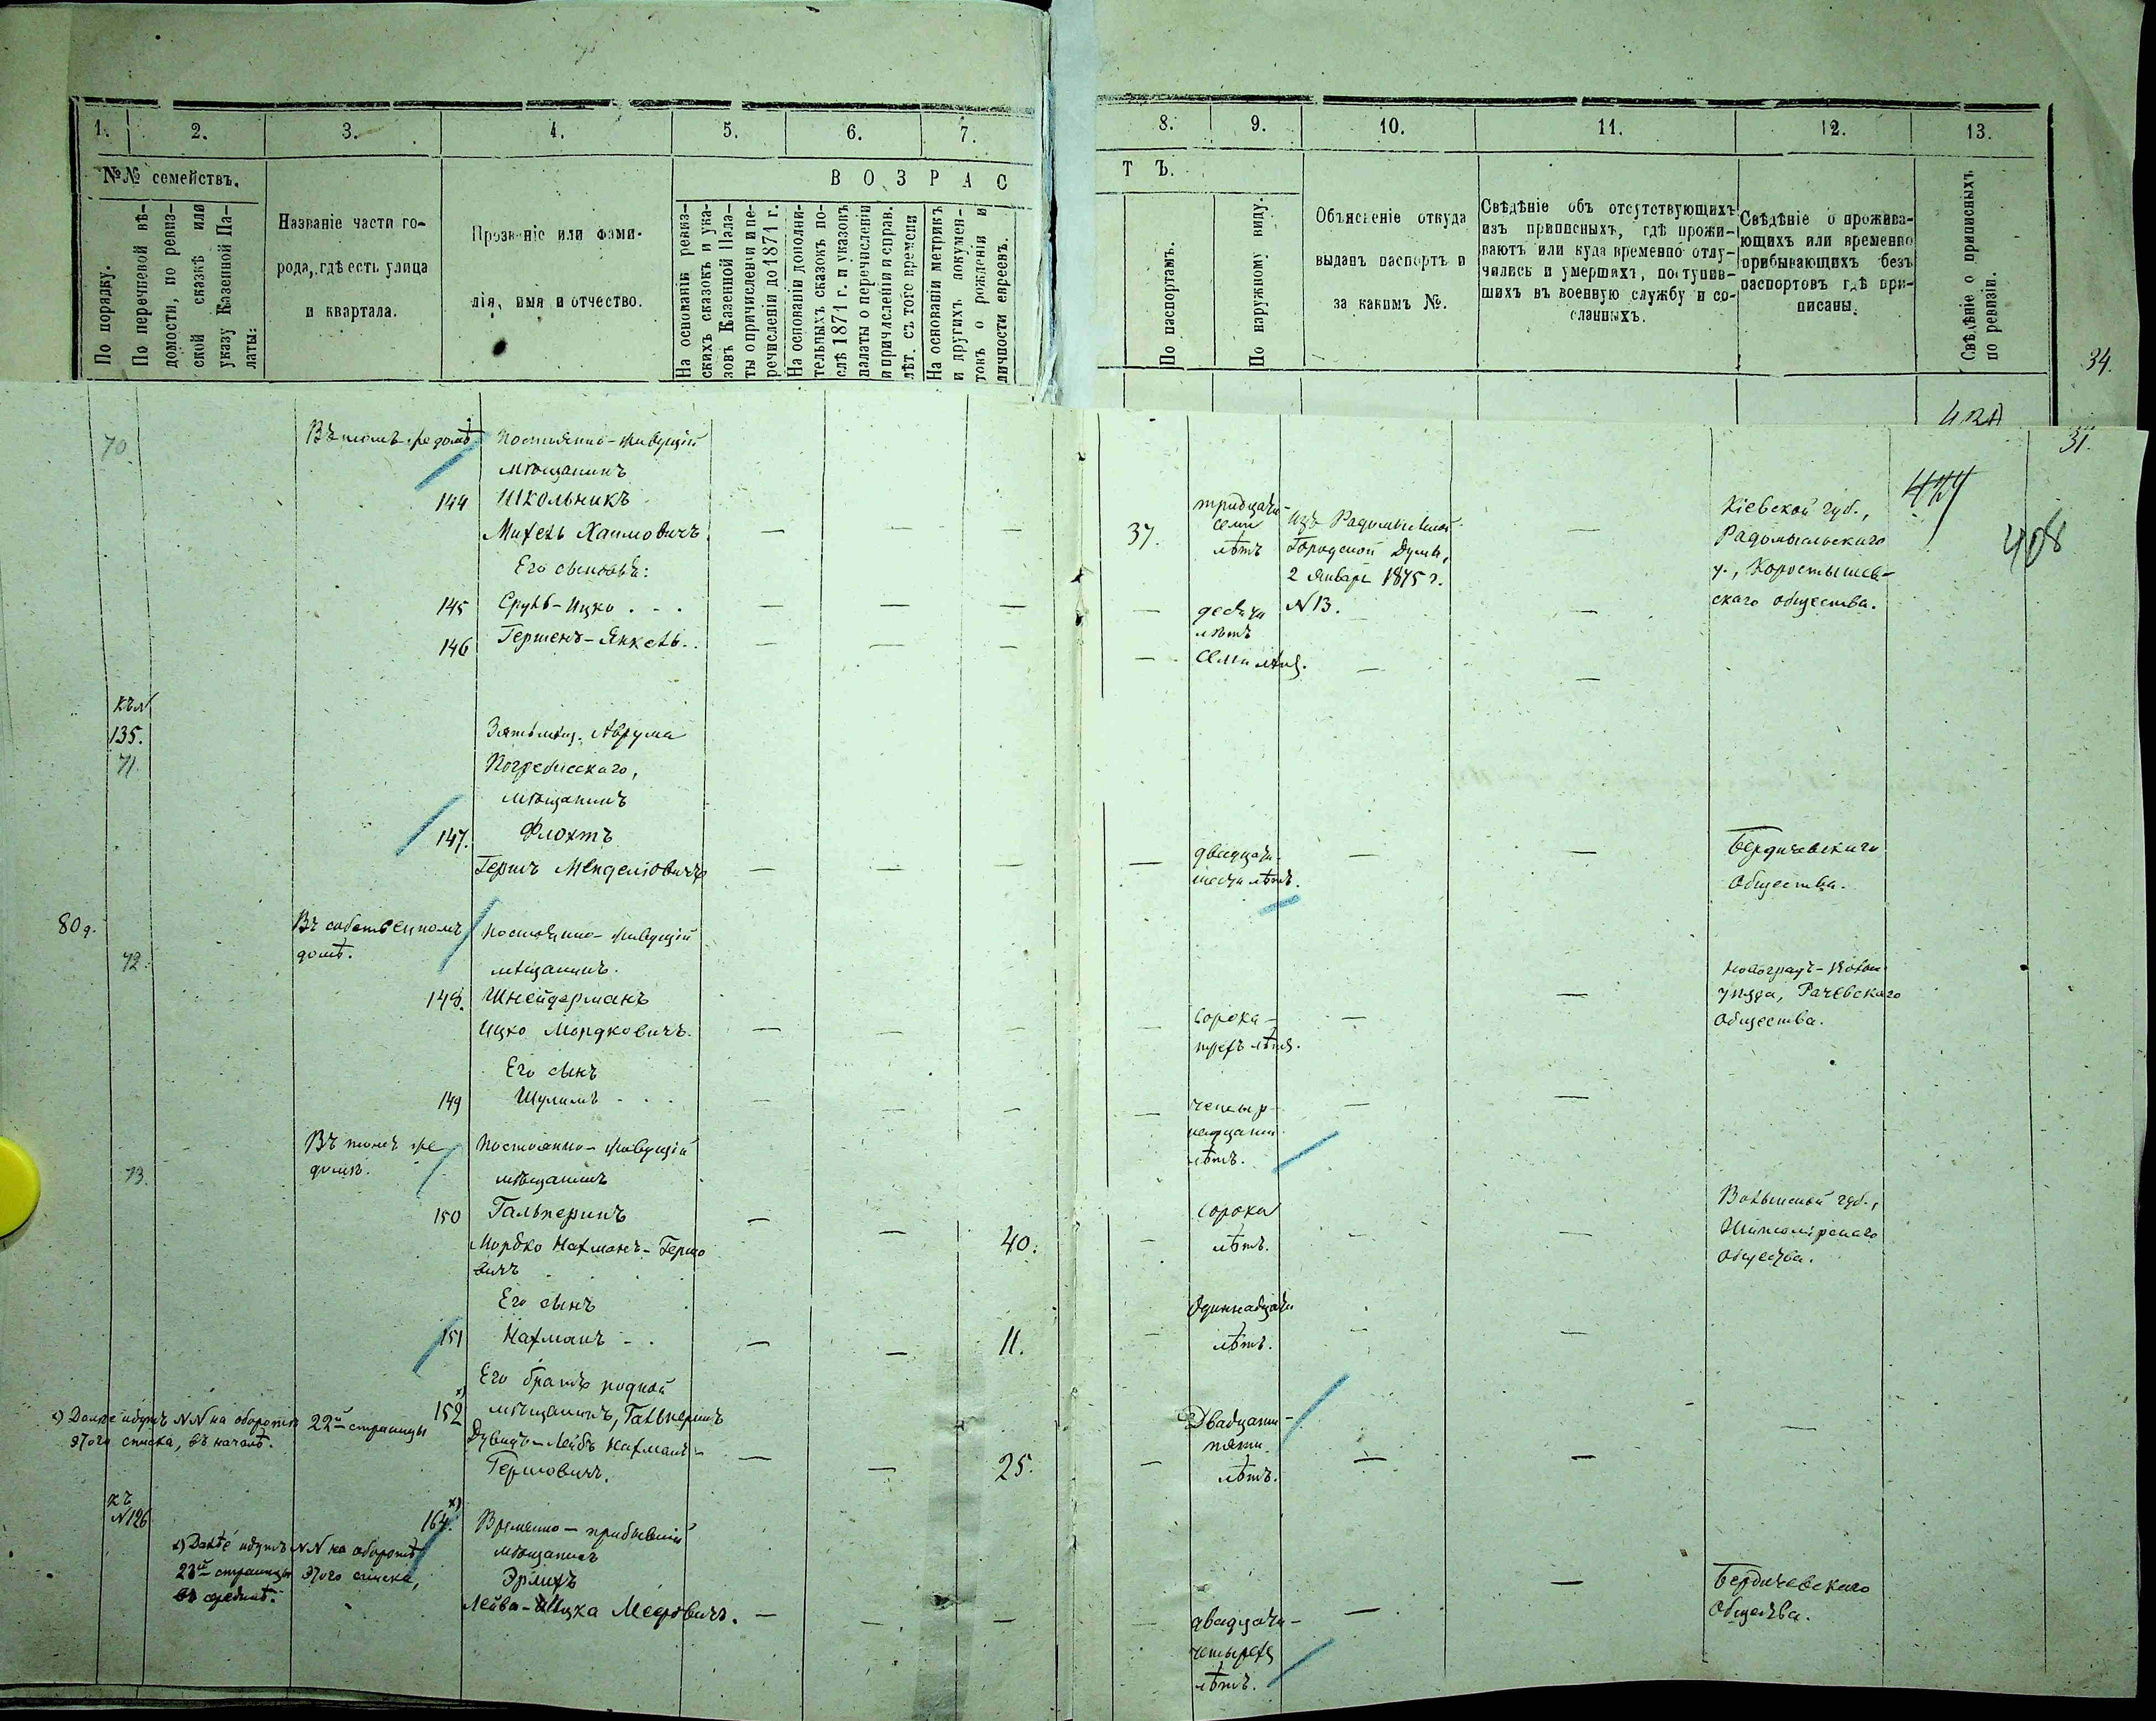 1. 2. 3. 4. 5. 6. 7. 8. 9. 10. 11. 12. 13.
№№ семействъ.
По порядку.
По перечневой вѣ-
домости, по ревиз-
ской сказкѣ или
указу Казенной Па-
латы:
Названіе части го-
рода, гдѣ есть улица
и квартала.
Прозваніе или фами-
лія, имя и отчество.
В О З Р А С
На основаніи ревиз-
скихъ сказокъ и ука-
зовъ Казенной Пала-
ты о причисленіи и пе-
речисленіи до 1871 г.
На основаніи дополни-
тельныхъ сказокъ по-
слѣ 1871 г. и указовъ
палаты о перечисленіи
и причисленіи и справ.
лѣт. съ того времени
На основаніи метрикъ
и другихъ докумен-
товъ о рожденіи и
личности евреевъ.
Т Ъ.
По паспортамъ.
По наружному виду.
Объясненіе откуда
выданъ паспортъ и
за какимъ №.
Свѣдѣніе объ отсутствующихъ
изъ приписныхъ, гдѣ прожи-
ваютъ или куда временно отлу-
чились и умершихъ, поступив-
шихъ въ военную службу и со-
сланныхъ.
Свѣдѣніе о прожива-
ющихъ или временно
прибывающихъ безъ
паспортовъ гдѣ при-
писаны.
Свѣдѣніе о приписныхъ
по ревизіи.
34.
31.
408
70.
Въ томъ же домѣ
Постоянно-живущій
мѣщанинъ
144 Школьникъ
Михель Хаимовичъ
37.
тридцати
семи
лѣтъ
Изъ Радомысльской
Городской Думы,
2 Января 1875 г.
N 13.
Кіевской губ.,
Радомысльскаго
у., Коростышев-
скаго общества.
Его сыновья:
145 Сруль-Ицко . . .
десяти
лѣтъ
146 Гершенъ-Янкель . .
семи лѣтъ.
къ N
135.
71.
Зять мѣщ. Аврума
Погребисскаго,
мѣщанинъ
147. Флохтъ
Гершъ Менделіовичъ
двадцати
шести лѣтъ.
Бердичевскаго
Общества.
80 д.
72.
Въ собственномъ
домѣ.
Постоянно-живущій
мѣщанинъ.
148. Шнейдерманъ
Ицко Мордковичъ.
сорока-
трехъ лѣтъ.
Новоградъ-Волын.
уѣзда, Рачевскаго
Общества.
Его сынъ
149 Шулимъ . . .
четыр-
надцати
лѣтъ.
73.
Въ томъ же
домѣ.
Постоянно-живущій
мѣщанинъ
150 Гальперинъ
Мордко Нахманъ-Гершо
вичъ
40.
сорока
лѣтъ.
Волынской губ.,
Житомірскаго
Общества.
Его сынъ
151 Нахманъ - . .
11.
Одиннадцати
лѣтъ.
Его братъ родной
152 х) мѣщанинъ, Гальперинъ
Дувидъ-Лейбъ Нахманъ-
Гершовичъ.
25.
Двадцати-
пяти
лѣтъ.
х) Далѣе идутъ NN на оборотѣ 22й страницы
этого списка, въ началѣ.
къ
N 126
164. х) Временно-прибывшій
мѣщанинъ
Эрлихъ
Лейва-Ицка Мееровичъ.
двадцати-
четырехъ
лѣтъ.
Бердичевскаго
Общества.
х) Далѣе идутъ NN на оборотѣ
23й страницы этого списка,
въ срединѣ.